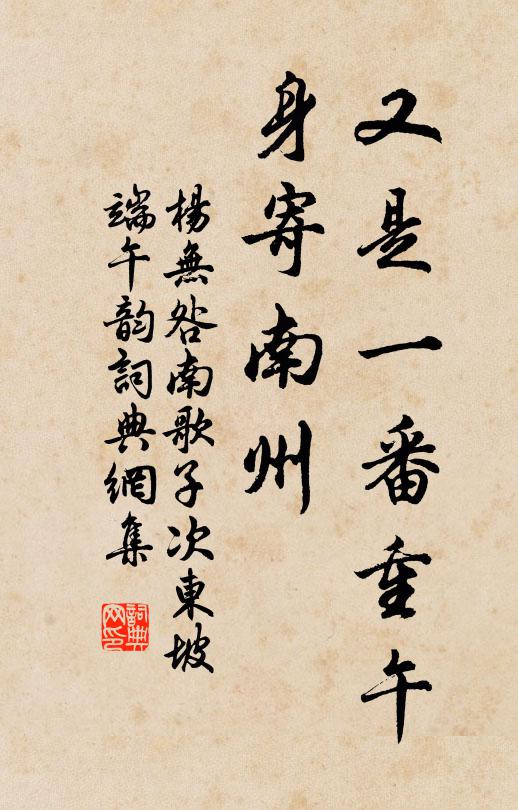 又是一番重午
身寄南州
楊無咎南歌子次東坡
端午韵詞典網集
詞典
网印